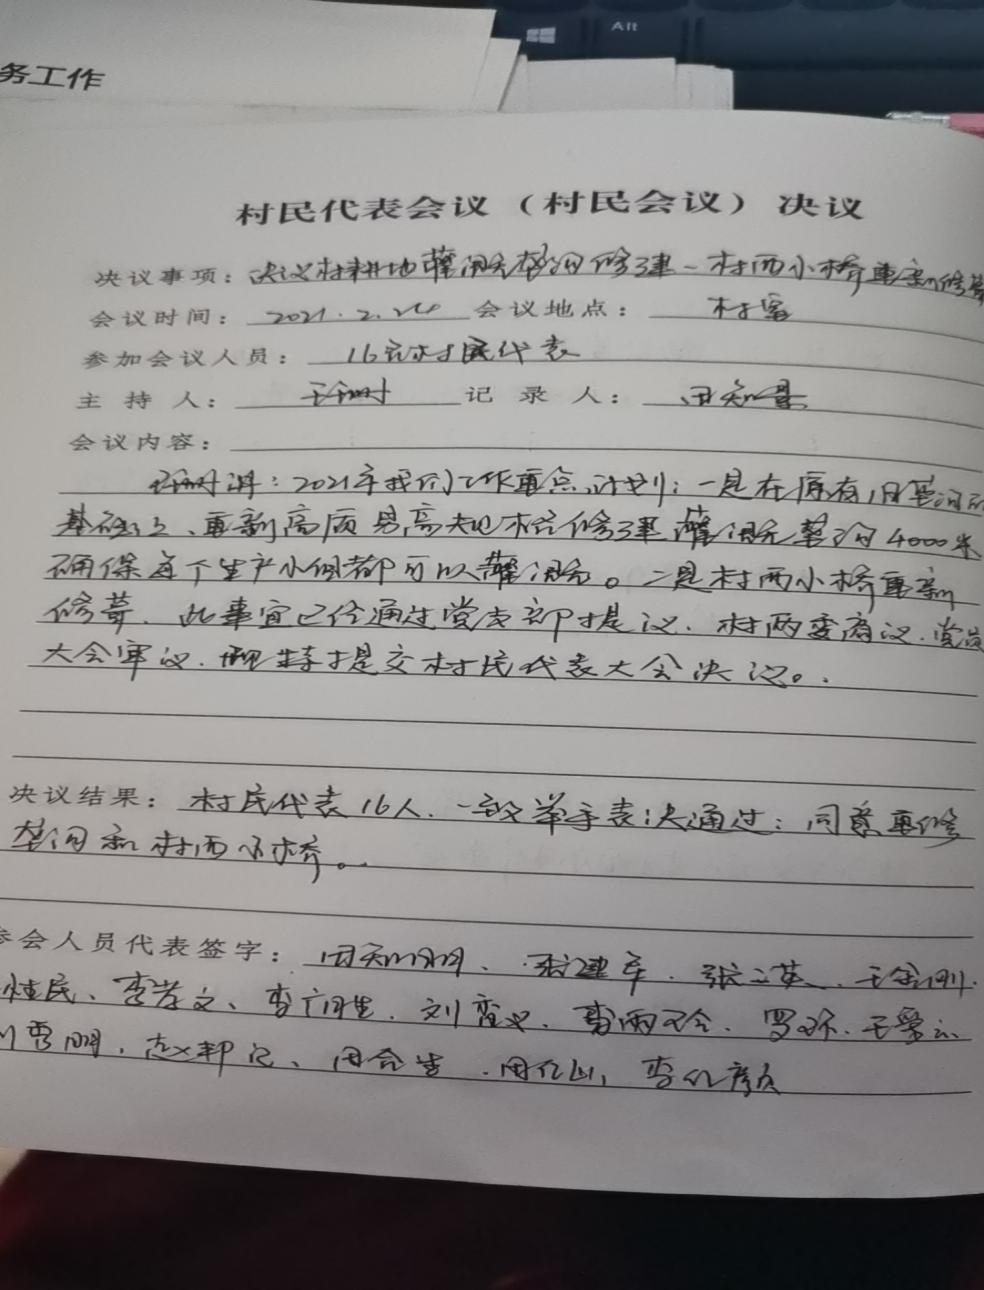 Alt
务工作
村民代表会议（村民会议）决议
决议事项：决议村耕地灌溉垄沟修建-村西小桥重新修葺
会议时间：2021.2.24 会议地点：村室
参加会议人员：16名村民代表
主持人： 记录人：田知
会议内容：
讲：2021年我们工作重点计划：一是在原有旧垄沟的
基础上、重新高质量高规格修建灌溉垄沟4000米
确保每个生产小组都可以灌溉。二是村西小桥重新
修葺．此事宜已经通过党支部提议．村两委商议．党员
大会审议．现特提交村民代表大会决议。
决议结果：村民代表16人．一致举手表决通过：同意重修
垄沟和村西小桥。
参会人员代表签字：田知明、建军．张二英．王金刚．
桂民、李孝文、李门生．刘 罗环．王
明．赵邦记、田合生．田仁山，李化彦